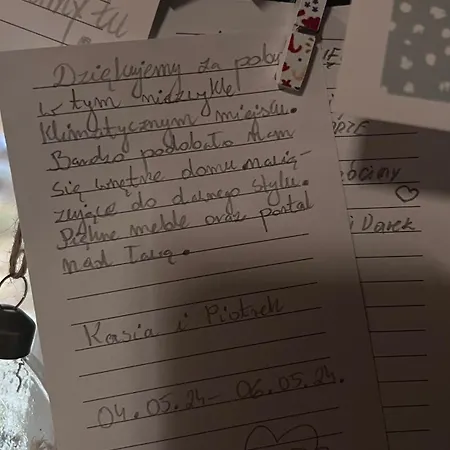 Dziękujemy za poby
w tym niezwykle
klimatycznym miejscu.
Bardzo podobało nam
się wnętrze domu nawią-
zujące do dawnego stylu.
Piękne meble oraz portal
nad
Kasia i Piotrek
04.05.24 - 06.05.24.
i Darek